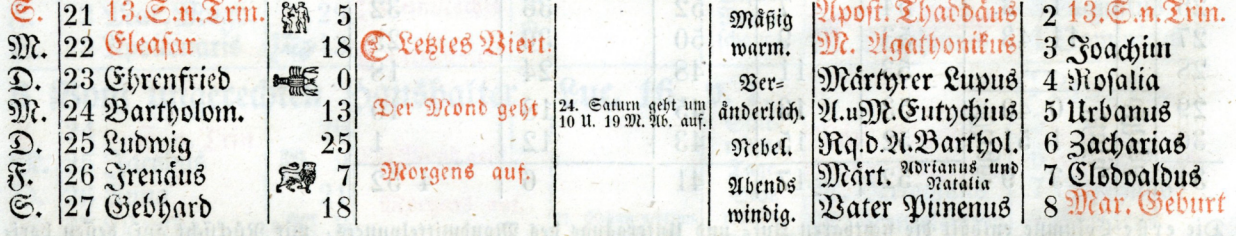 S. 21 13.S.n.Trin. 5 Mäßig Apost. Thaddäus 2 13.S.n.Trin.
M. 22 Eleasar 18 Letztes Viert. warm. M. Agathonikus 3 Joachim
D. 23 Ehrenfried 0 Ver= Märtyrer Lupus 4 Rosalia
M. 24 Bartholom. 13 Der Mond geht 24. Saturn geht um änderlich. A.u.M.Eutychius 5 Urbanus
10 U. 19 M. Ab. auf.
D. 25 Ludwig 25 Nebel. Rq.d.A.Barthol. 6 Zacharias
F. 26 Irenäus 7 Morgens auf. Abends Märt. Adrianus und Natalia 7 Clodoaldus
S. 27 Gebhard 18 windig. Vater Pimenus 8 Mar. Geburt